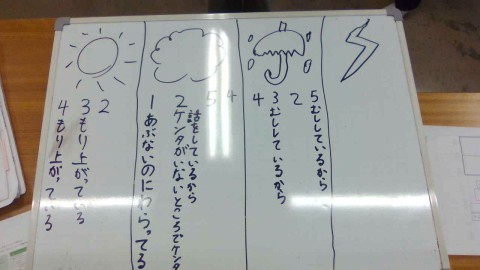 4 もり上がっている
3 もり上がっている
2
1 あぶないのにわらってる
2 ケンタがいないところでケンタ
話をしているから
5
4
4
3 むししているから
2
5 むししているから